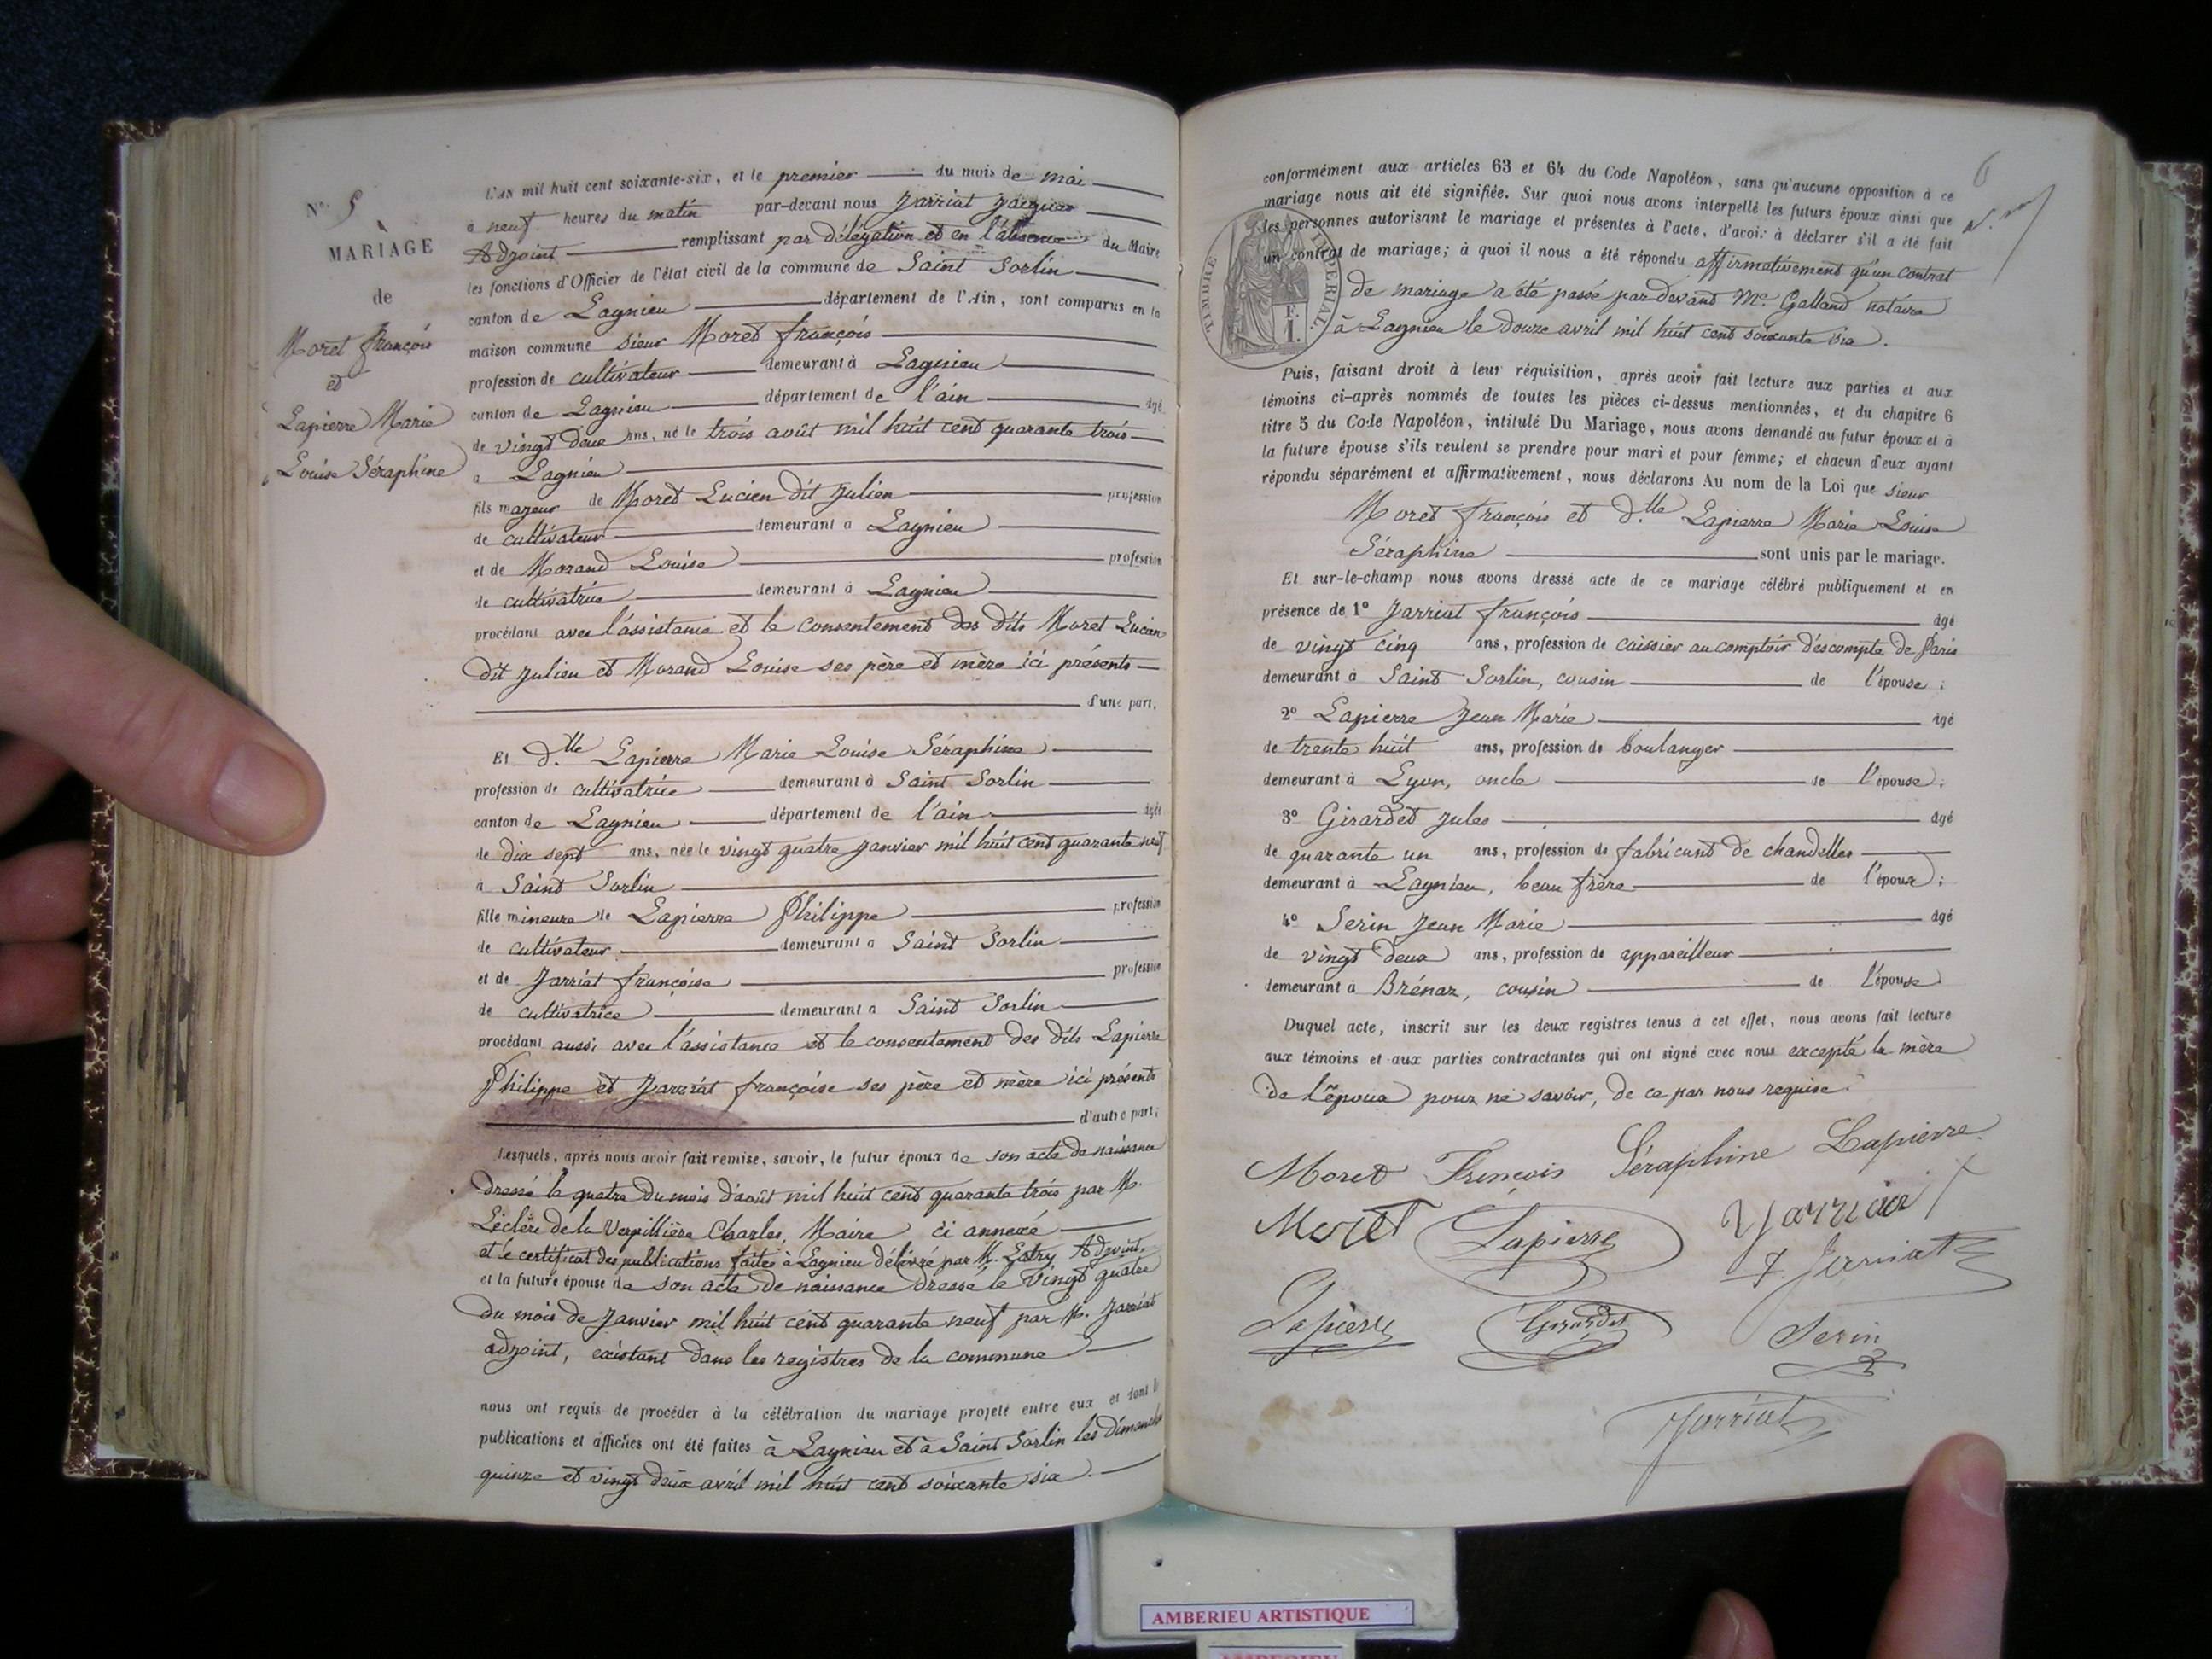 N° 5
MARIAGE
de
Moret françois
et
Lapierre Marie
Louise Séraphine
L'AN mil huit cent soixante-six, et le premier du mois de mai
à neuf heures du matin par-devant nous Jarriat
Adjoint remplissant par délégation et en l'absence du Maire
les fonctions d'Officier de l'état civil de la commune de Saint Sorlin
canton de Lagnieu département de l'Ain, sont comparus en la
maison commune sieur Moret françois
profession de cultivateur demeurant à Lagnieu
canton de Lagnieu département de l'ain âgé
de vingt deux ans, né le trois août mil huit cent quarante trois
à Lagnieu
fils majeur de Moret Lucien dit Julien profession
de cultivateur demeurant à Lagnieu
et de Morand Louise profession
de cultivatrice demeurant à Lagnieu
procédant avec l'assistance et le consentement des dits Moret Lucien
dit Julien et Morand Louise ses père et mère ici présents
d'une part.
Et D.lle Lapierre Marie Louise Séraphine
profession de cultivatrice demeurant à Saint Sorlin
canton de Lagnieu département de l'ain âgée
de dix sept ans, née le vingt quatre janvier mil huit cent quarante neuf
à Saint Sorlin
fille mineure de Lapierre Philippe profession
de cultivateur demeurant à Saint Sorlin
et de Jarriat françoise profession
de cultivatrice demeurant à Saint Sorlin
procédant aussi avec l'assistance et le consentement des dits Lapierre
Philippe et Jarriat françoise ses père et mère ici présents
d'autre part;
Lesquels, après nous avoir fait remise, savoir, le futur époux de son acte de naissance
dressé le quatre du mois d'août mil huit cent quarante trois par M.
Leclerc de la Verpillière Charles, Maire ci annexé
et le certificat des publications faites à Lagnieu délivré par M. Estry Adjoint,
et la future épouse de son acte de naissance dressé le vingt quatre
du mois de Janvier mil huit cent quarante neuf par M. Jarriat
adjoint, existant dans les registres de la commune
nous ont requis de procéder à la célébration du mariage projeté entre eux et dont les
publications et affiches ont été faites à Lagnieu et à Saint Sorlin les dimanches
quinze et vingt deux avril mil huit cent soixante six.
6
conformément aux articles 63 et 64 du Code Napoléon, sans qu'aucune opposition à ce
mariage nous ait été signifiée. Sur quoi nous avons interpellé les futurs époux ainsi que
les personnes autorisant le mariage et présentes à l'acte, d'avoir à déclarer s'il a été fait
un contrat de mariage; à quoi il nous a été répondu affirmativement qu'un contrat
de mariage a été passé par devant Me Galland notaire
à Lagnieu le douze avril mil huit cent soixante six.
TIMBRE IMPERIAL.
1 F.
Puis, faisant droit à leur réquisition, après avoir fait lecture aux parties et aux
témoins ci-après nommés de toutes les pièces ci-dessus mentionnées, et du chapitre 6
titre 5 du Code Napoléon, intitulé Du Mariage, nous avons demandé au futur époux et à
la future épouse s'ils veulent se prendre pour mari et pour femme; et chacun d'eux ayant
répondu séparément et affirmativement, nous déclarons Au nom de la Loi que sieur
Moret françois et D.lle Lapierre Marie Louise
Séraphine sont unis par le mariage.
Et sur-le-champ nous avons dressé acte de ce mariage célébré publiquement et en
présence de 1° Jarriat françois âgé
de vingt cinq ans, profession de caissier au comptoir d'escompte de Paris
demeurant à Saint Sorlin, cousin de l'épouse;
2° Lapierre Jean Marie âgé
de trente huit ans, profession de boulanger
demeurant à Lyon, oncle de l'épouse;
3° Girardet Jules âgé
de quarante un ans, profession de fabricant de chandelles
demeurant à Lagnieu, beau frère de l'époux;
4° Serin Jean Marie âgé
de vingt deux ans, profession de appareilleur
demeurant à Brénaz, cousin de l'épouse
Duquel acte, inscrit sur les deux registres tenus à cet effet, nous avons fait lecture
aux témoins et aux parties contractantes qui ont signé avec nous excepté la mère
de l'époux pour ne savoir, de ce par nous requise.
Moret François Séraphine Lapierre
Moret Lapierre Jarriat
F. Jarriat
Lapierre Girardet Serin
Jarriat
AMBERIEU ARTISTIQUE